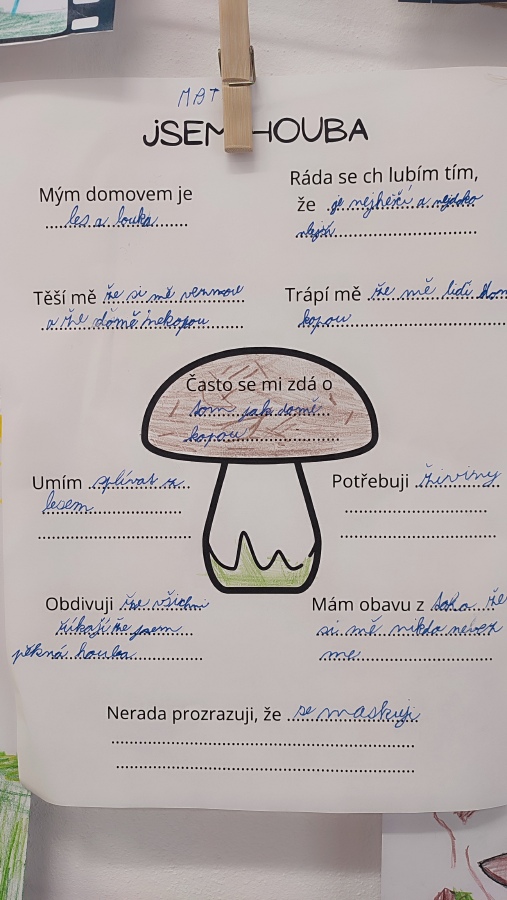 MAT
JSEM HOUBA
Mým domovem je
les a louka
Ráda se ch lubím tím,
že je nejhezčí a
Těší mě že si mě vezmou
a že do mě nekopou
Trápí mě že mě lidi
kopou
Často se mi zdá o
tom jak do mě
kopou
Umím splívat z
lesem
Potřebuji živiny
Obdivuji že všichni
říkají že jsem
pěkná houba
Mám obavu z toho že
si mě nikdo nevez
me
Nerada prozrazuji, že se maskuji